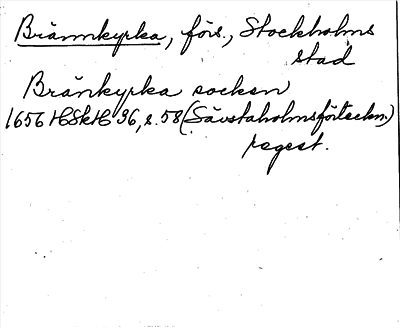 Brännkyrka, förs., Stockholms
stad
Bränkyrka socken
1656 HSkH 36, s. 58 (Sävstaholmsförteckn.)
regest.